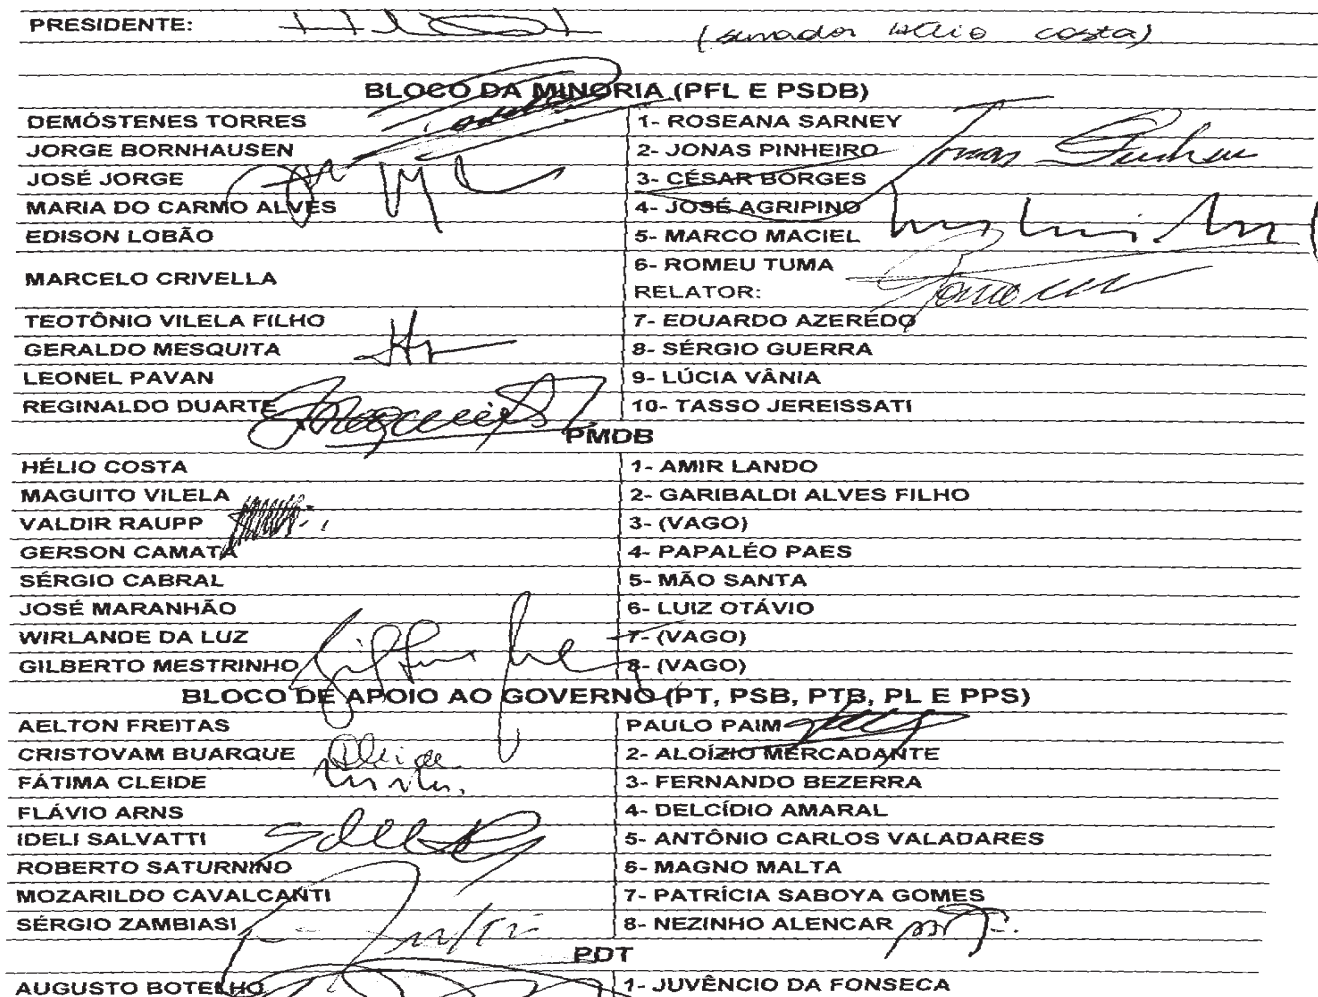 PRESIDENTE: (senador Hélio costa)
BLOCO DA MINORIA (PFL E PSDB)
DEMÓSTENES TORRES 1- ROSEANA SARNEY
JORGE BORNHAUSEN 2- JONAS PINHEIRO Jonas Pinheiro
JOSÉ JORGE 3- CÉSAR BORGES
MARIA DO CARMO ALVES 4- JOSÉ AGRIPINO
EDISON LOBÃO 5- MARCO MACIEL
MARCELO CRIVELLA 6- ROMEU TUMA
RELATOR:
TEOTÔNIO VILELA FILHO 7- EDUARDO AZEREDO
GERALDO MESQUITA 8- SÉRGIO GUERRA
LEONEL PAVAN 9- LÚCIA VÂNIA
REGINALDO DUARTE 10- TASSO JEREISSATI
PMDB
HÉLIO COSTA 1- AMIR LANDO
MAGUITO VILELA 2- GARIBALDI ALVES FILHO
VALDIR RAUPP 3- (VAGO)
GERSON CAMATA 4- PAPALÉO PAES
SÉRGIO CABRAL 5- MÃO SANTA
JOSÉ MARANHÃO 6- LUIZ OTÁVIO
WIRLANDE DA LUZ 7- (VAGO)
GILBERTO MESTRINHO 8- (VAGO)
BLOCO DE APOIO AO GOVERNO (PT, PSB, PTB, PL E PPS)
AELTON FREITAS PAULO PAIM
CRISTOVAM BUARQUE 2- ALOÍZIO MERCADANTE
FÁTIMA CLEIDE 3- FERNANDO BEZERRA
FLÁVIO ARNS 4- DELCÍDIO AMARAL
IDELI SALVATTI 5- ANTÔNIO CARLOS VALADARES
ROBERTO SATURNINO 6- MAGNO MALTA
MOZARILDO CAVALCANTI 7- PATRÍCIA SABOYA GOMES
SÉRGIO ZAMBIASI 8- NEZINHO ALENCAR
PDT
AUGUSTO BOTELHO 1- JUVÊNCIO DA FONSECA